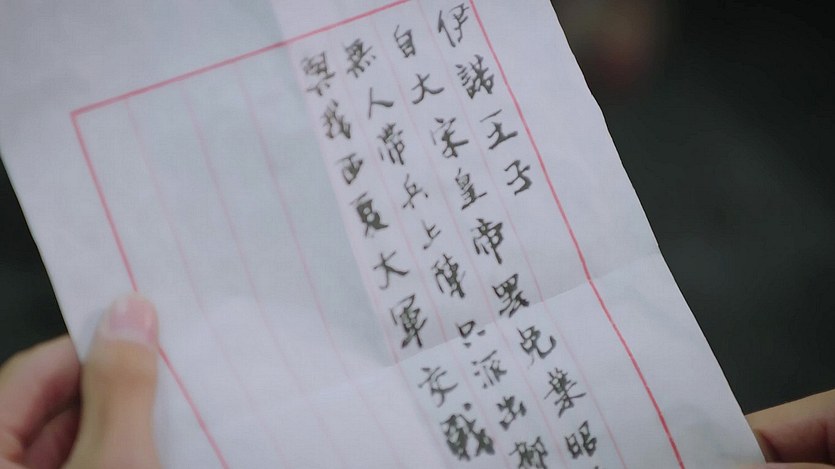 伊諾王子
自大宋皇帝罢免葉昭
無人帶兵上陣只派出
與我西夏大軍交戰